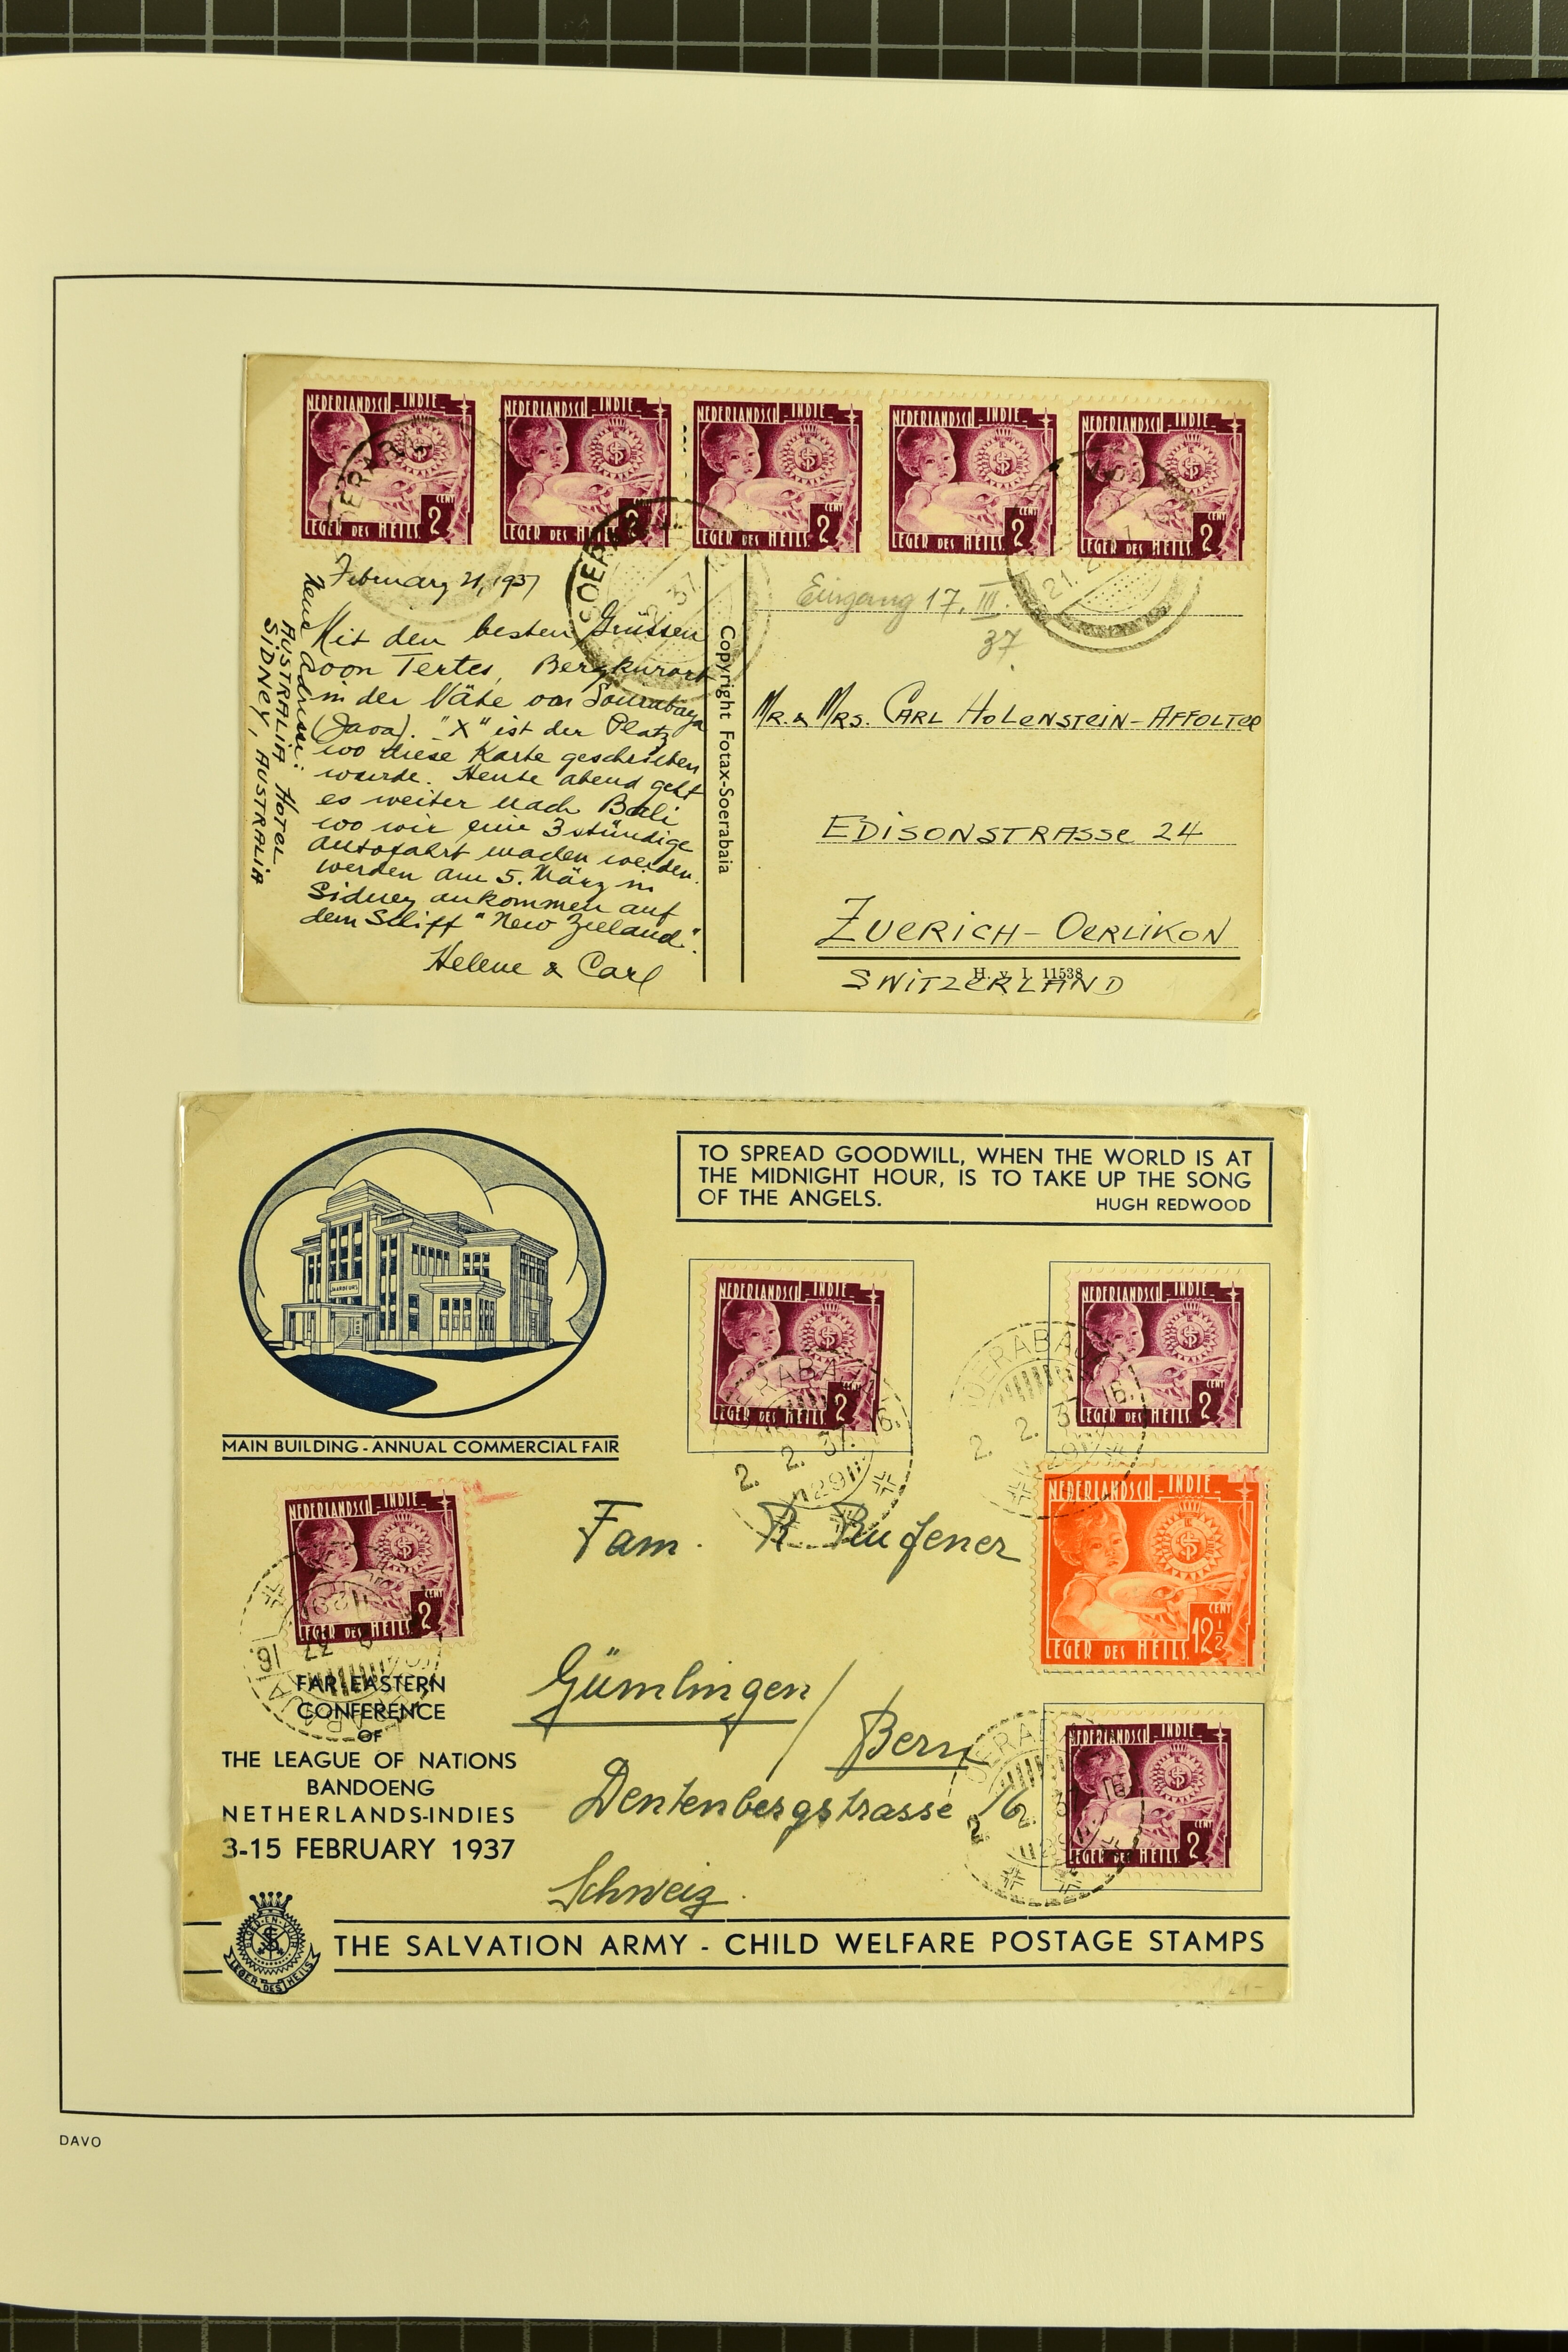 NEDERLANDSCH-INDIE
LEGER DES HEILS. 2 CENT
NEDERLANDSCH-INDIE
LEGER DES HEILS. 2
NEDERLANDSCH-INDIE
LEGER DES HEILS. 2 CENT
NEDERLANDSCH-INDIE
LEGER DES HEILS. 2 CENT
NEDERLANDSCH-INDIE
LEGER DES HEILS. 2 CENT
February 21, 1937
Mit den besten Grüssen
von Tertes, Bergkurort
in der Nähe von Sourabaya
(Java). "X" ist der Platz
wo diese Karte geschrieben
wurde. Heute abend geht
es weiter nach Bali
wo wir eine 3 stündige
Autofahrt machen werden.
werden am 5. März in
Sidney ankommen auf
dem Schiff "New Zeeland".
Helene & Carl
Neue Adresse:
AUSTRALIA HOTEL
SIDNEY, AUSTRALIA
Copyright Fotax-Soerabaia
Eingang 17. III.
37
MR. & MRS. CARL HOLENSTEIN-AFFOLTER
EDISONSTRASSE 24
ZUERICH-OERLIKON
H. v. I. 11538
SWITZERLAND
TO SPREAD GOODWILL, WHEN THE WORLD IS AT
THE MIDNIGHT HOUR, IS TO TAKE UP THE SONG
OF THE ANGELS. HUGH REDWOOD
MAIN BUILDING - ANNUAL COMMERCIAL FAIR
NEDERLANDSCH-INDIE
LEGER DES HEILS. 2 CENT
NEDERLANDSCH-INDIE
LEGER DES HEILS. 2 CENT
2. 2. 37. 16.
2. 2. 37. 16.
NEDERLANDSCH-INDIE
LEGER DES HEILS. 2 CENT
NEDERLANDSCH-INDIE
LEGER DES HEILS. 12½ CENT
NEDERLANDSCH-INDIE
LEGER DES HEILS. 2 CENT
Fam. R. Rufener
Gümlingen/
Bern
Dentenbergstrasse 16
Schweiz.
FAR-EASTERN
CONFERENCE
OF
THE LEAGUE OF NATIONS
BANDOENG
NETHERLANDS-INDIES
3-15 FEBRUARY 1937
LEGER DES HEILS
THE SALVATION ARMY - CHILD WELFARE POSTAGE STAMPS
DAVO